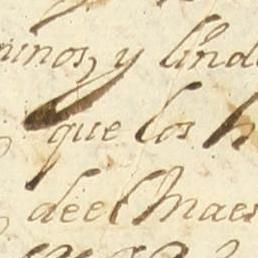 ninos, y lind
que los h
de el Maes